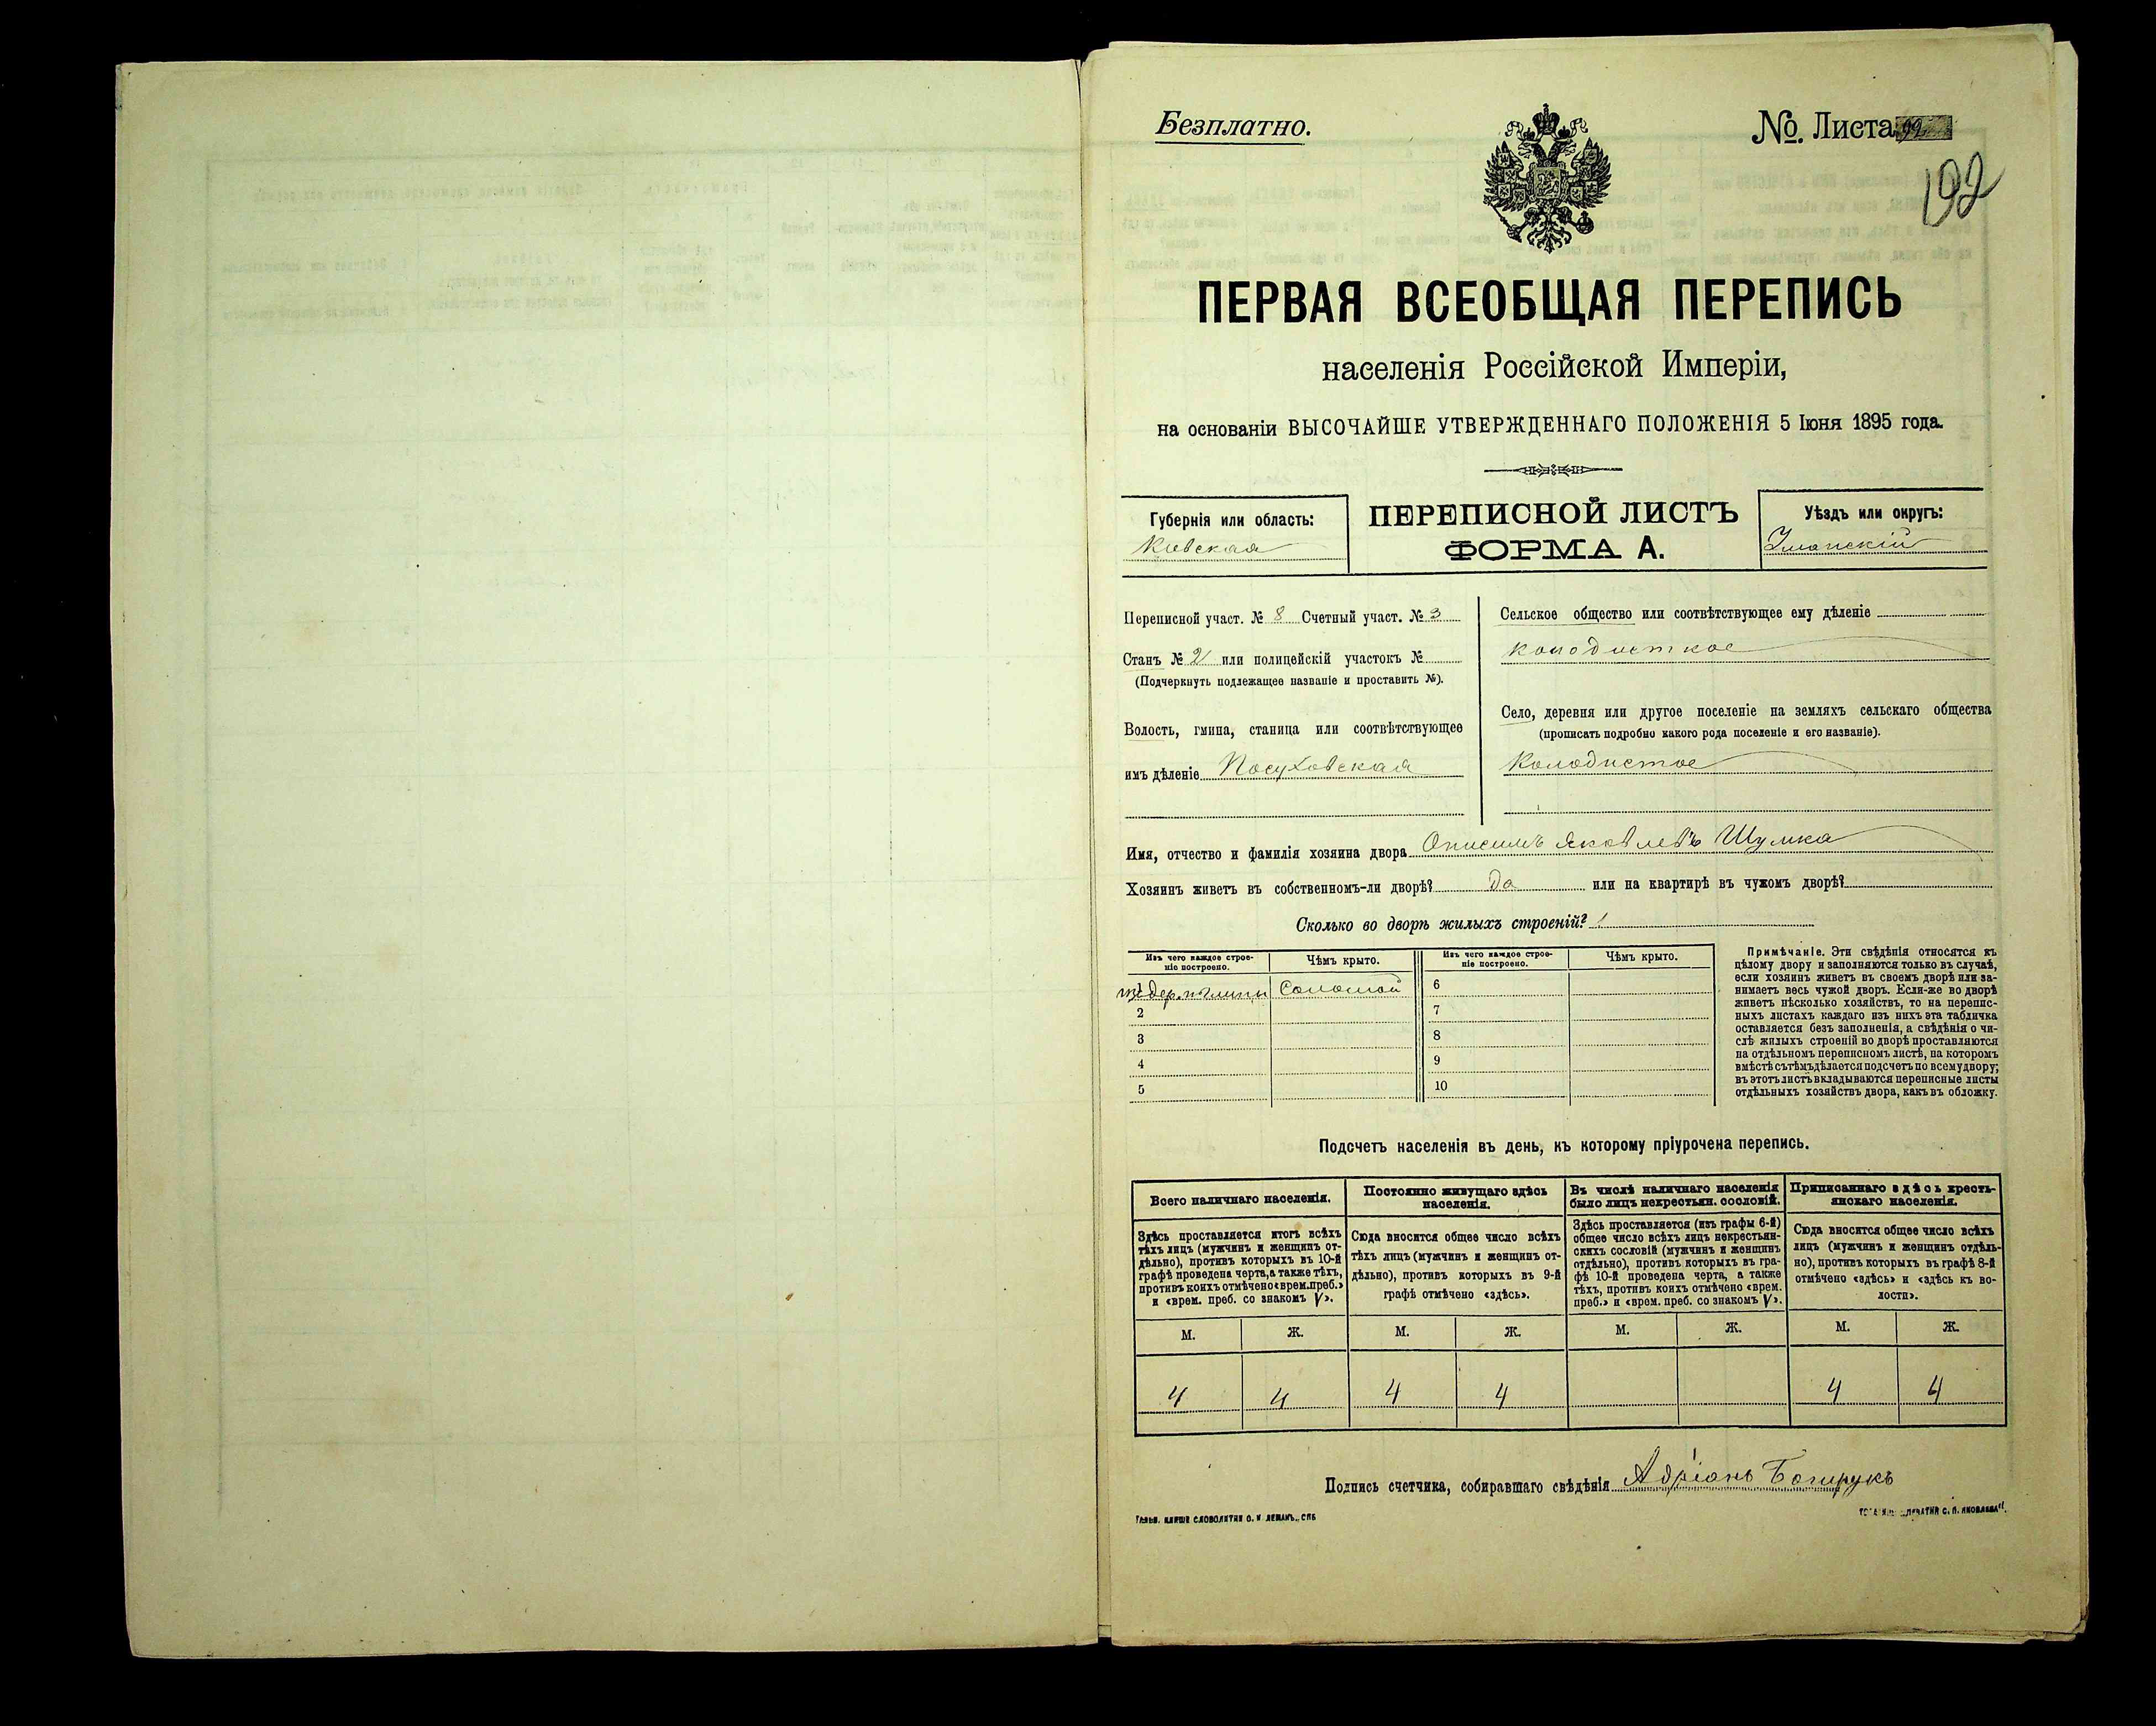 Безплатно.
№ Листа 92
192
ПЕРВАЯ ВСЕОБЩАЯ ПЕРЕПИСЬ
населенія Россійской Имперіи,
на основаніи ВЫСОЧАЙШЕ УТВЕРЖДЕННАГО ПОЛОЖЕНІЯ 5 Іюня 1895 года.
Губернія или область:
Кіевская
ПЕРЕПИСНОЙ ЛИСТЪ
ФОРМА А.
Уѣздъ или округъ:
Уманскій
Переписной участ. № 8 Счетный участ. № 3
Станъ № 2 или полицейскій участокъ №
(Подчеркнуть подлежащее названіе и проставить №).
Волость, гмина, станица или соотвѣтствующее
имъ дѣленіе Посуховская
Сельское общество или соотвѣтствующее ему дѣленіе
Колодисткое
Село, деревня или другое поселеніе на земляхъ сельскаго общества
(прописать подробно какого рода поселеніе и его названіе).
Колодистое
Имя, отчество и фамилія хозяина двора Онисимъ Яковлевъ Шумка
Хозяинъ живетъ въ собственномъ-ли дворѣ? Да или на квартирѣ въ чужомъ дворѣ?
Сколько во дворѣ жилыхъ строеній? 1
Изъ чего каждое строе-
ніе построено.
Чѣмъ крыто.
Изъ чего каждое строе-
ніе построено.
Чѣмъ крыто.
1 изъ дер. и глины Соломой 6
2 7
3 8
4 9
5 10
Примѣчаніе. Эти свѣдѣнія относятся къ
цѣлому двору и заполняются только въ случаѣ,
если хозяинъ живетъ въ своемъ дворѣ или за-
нимаетъ весь чужой дворъ. Если-же во дворѣ
живетъ нѣсколько хозяйствъ, то на перепис-
ныхъ листахъ каждаго изъ нихъ эта табличка
оставляется безъ заполненія, а свѣдѣнія о чи-
слѣ жилыхъ строеній во дворѣ проставляются
на отдѣльномъ переписномъ листѣ, на которомъ
вмѣстѣ съ тѣмъ дѣлается подсчетъ по всему двору;
въ этотъ листъ вкладываются переписные листы
отдѣльныхъ хозяйствъ двора, какъ въ обложку.
Подсчетъ населенія въ день, къ которому пріурочена перепись.
Всего наличнаго населенія.
Здѣсь проставляется итогъ всѣхъ
тѣхъ лицъ (мужчинъ и женщинъ от-
дѣльно), противъ которыхъ въ 10-й
графѣ проведена черта, а также тѣхъ,
противъ коихъ отмѣчено «врем. преб.»
и «врем. преб. со знакомъ V».
Постоянно живущаго здѣсь
населенія.
Сюда вносится общее число всѣхъ
тѣхъ лицъ (мужчинъ и женщинъ от-
дѣльно), противъ которыхъ въ 9-й
графѣ отмѣчено «здѣсь».
Въ числѣ наличнаго населенія
было лицъ некрестьян. сословій.
Здѣсь проставляется (изъ графы 6-й)
общее число всѣхъ лицъ некрестьян-
скихъ сословій (мужчинъ и женщинъ
отдѣльно), противъ которыхъ въ гра-
фѣ 10-й проведена черта, а также
тѣхъ, противъ коихъ отмѣчено «врем.
преб.» и «врем. преб. со знакомъ V».
Приписаннаго здѣсь кресть-
янскаго населенія.
Сюда вносится общее число всѣхъ
лицъ (мужчинъ и женщинъ отдѣль-
но), противъ которыхъ въ графѣ 8-й
отмѣчено «здѣсь» и «здѣсь къ во-
лости».
М. Ж. М. Ж. М. Ж. М. Ж.
4 4 4 4 4 4
Подпись счетчика, собиравшаго свѣдѣнія Адріанъ
СЛОВОЛИТНИ О. И. ЛЕМАНЪ, СПБ
С. П. ЯКОВЛЕВА